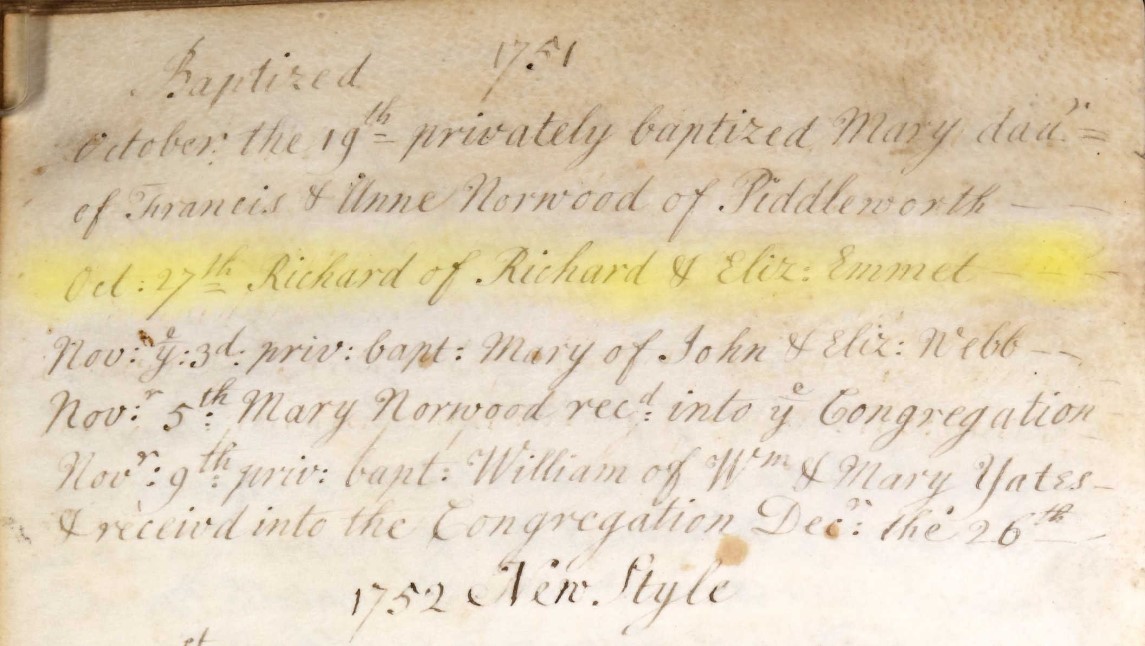 Baptized 1751
October the 19th privately baptized Mary daur =
of Francis & Anne Norwood of Piddleworth
Oct: 27th Richard of Richard & Eliz: Emmet
Nov: ye: 3d: priv: bapt: Mary of John & Eliz: Webb
Nov:r 5th: Mary Norwood recd: into ye Congregation
Novr: 9th: priv: bapt: William of Wm & Mary Yates
& receivd into the Congregation Decr: the 26th
1752 New Style
st